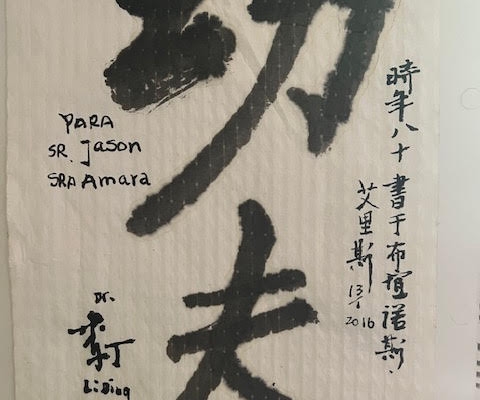 功夫
時年八十書于布宜諾斯
艾里斯
13
2016
PARA
SR. Jason
SRA Amara
Dr.
Li Ding